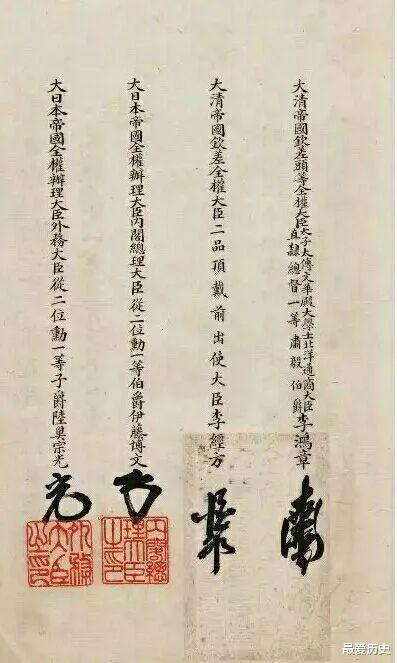 大清帝國欽差頭等全權大臣太子太傅文華殿大學士北洋通商大臣
直隸總督一等肅毅伯爵
李鴻章
大清帝國欽差全權大臣二品頂戴前出使大臣李經方
大日本帝國全權辦理大臣內閣總理大臣從二位勳一等伯爵伊藤博文
內閣總理大臣之印
大日本帝國全權辦理大臣外務大臣從二位勳一等子爵陸奧宗光
外務大臣之印
最爱历史